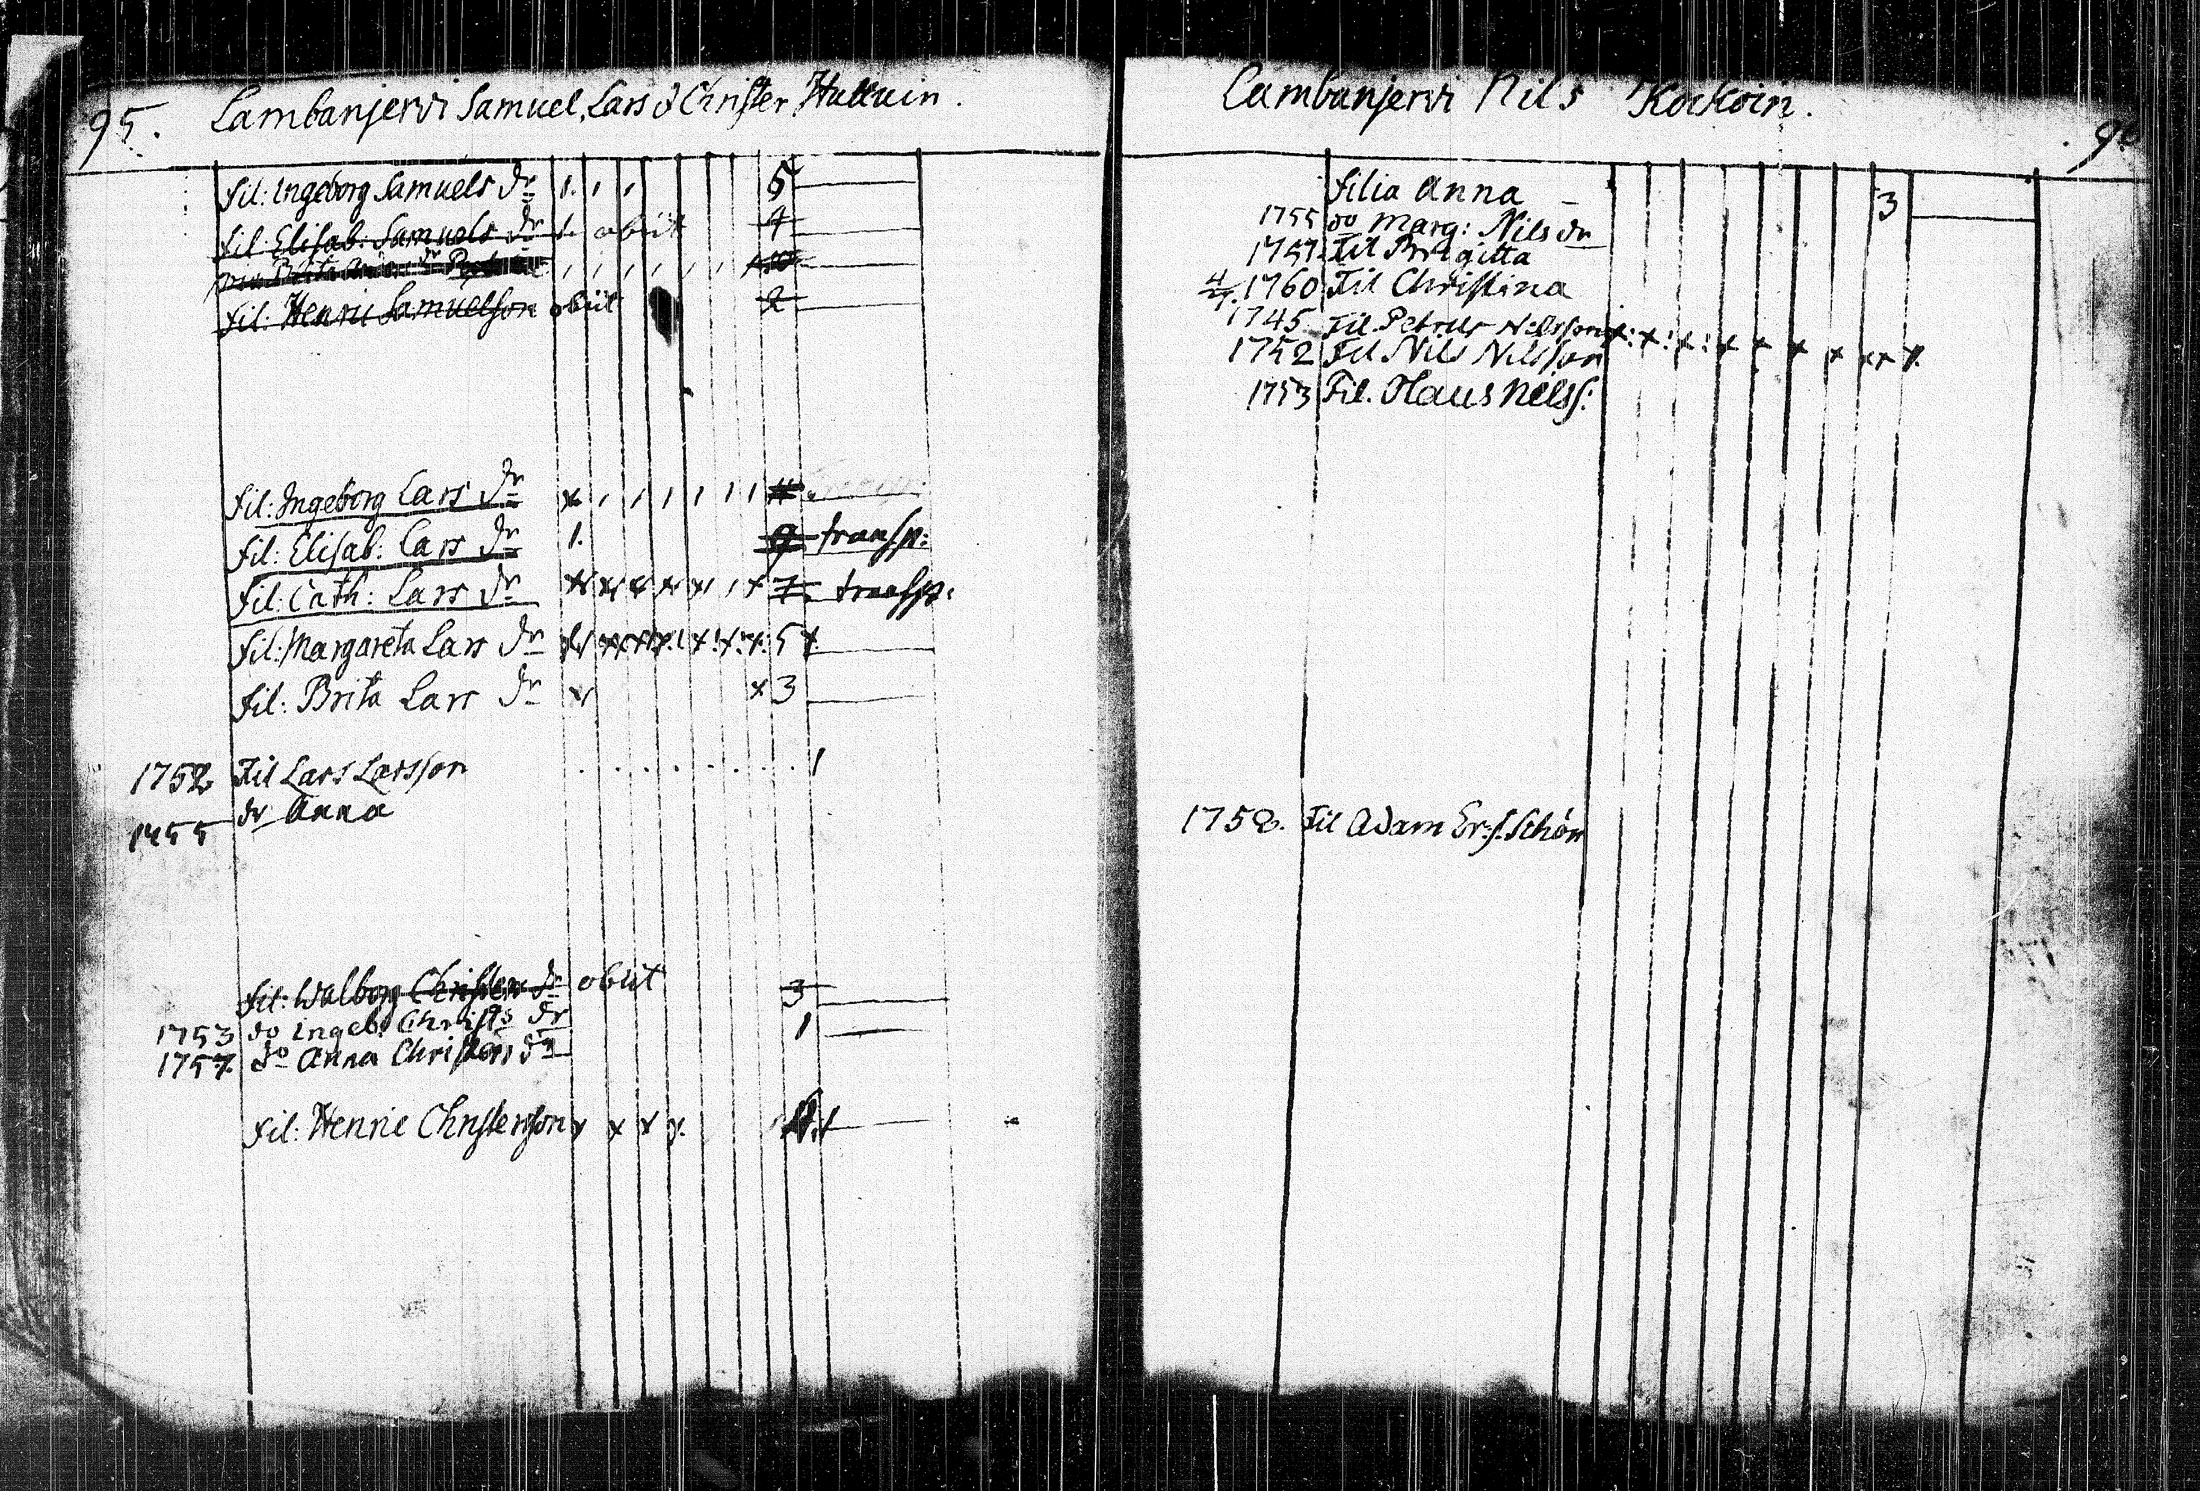 95. Lambanjervi Samuel, Lars & Christer Hukuin.
fil: Ingeborg Samuels dr 1. , , 5
fil: Elisab: Samuels dr 1. obiit 4
fil: Henric Samuelson obiit 2
fil: Ingeborg Lars dr x , , , , , ,
fil: Elisab: Lars dr 1. 9 transp:
fil: Cath: Lars dr 7. transp:
fil: Margareta Lars dr 5
fil: Brita Lars dr x x 3
1752 Fil Lars Larsson 1
dr Anna
1755
fil: Walborg Christers dr obiit 3
1753 do Ingeb. Christs dr 1
1757 do Anna Christers dr
fil: Henric Christerson x x x x.
Lambanjervi Nils Kockoin.
filia Anna 3
1755 do Marg: Nils dr
1757. Fil Brigitta
1760 Fil Christina
1745 Fil. Petrus Nilsson x: x: x: x x x x xx x.
1752 Fil Nils Nilsson
1753 Fil. Olaus Nilss:
1752. Fil Adam Er:s. Schön